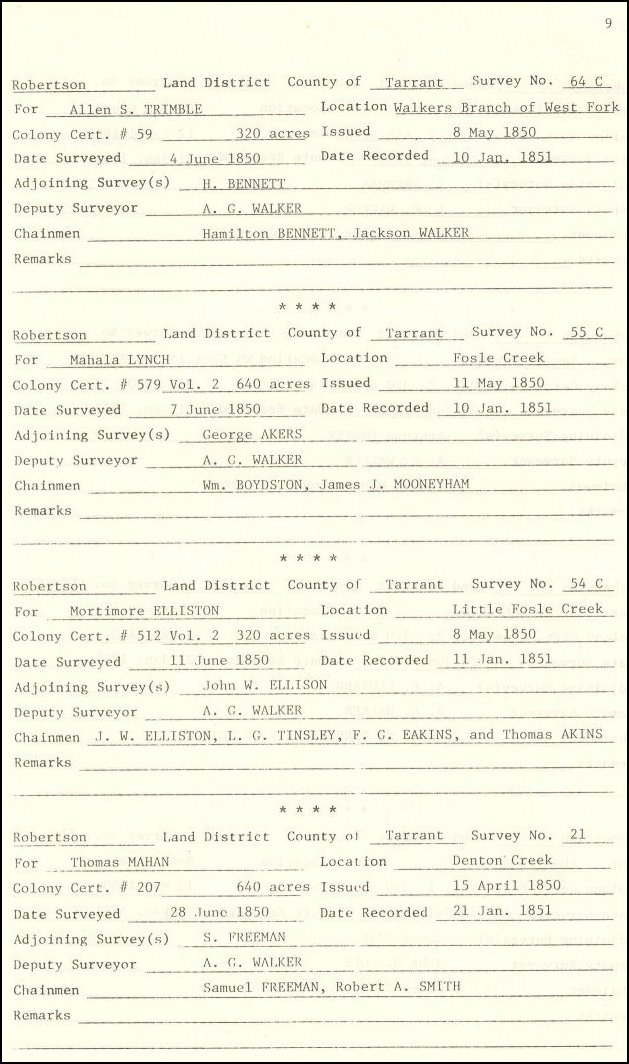 9
Robertson Land District County of Tarrant Survey No. 64 C
For Allen S. TRIMBLE Location Walkers Branch of West Fork
Colony Cert. # 59 320 acres Issued 8 May 1850
Date Surveyed 4 June 1850 Date Recorded 10 Jan. 1851
Adjoining Survey(s) H. BENNETT
Deputy Surveyor A. G. WALKER
Chainmen Hamilton BENNETT, Jackson WALKER
Remarks
* * * *
Robertson Land District County of Tarrant Survey No. 55 C
For Mahala LYNCH Location Fosle Creek
Colony Cert. # 579 Vol. 2 640 acres Issued 11 May 1850
Date Surveyed 7 June 1850 Date Recorded 10 Jan. 1851
Adjoining Survey(s) George AKERS
Deputy Surveyor A. G. WALKER
Chainmen Wm. BOYDSTON, James J. MOONEYHAM
Remarks
* * * *
Robertson Land District County of Tarrant Survey No. 54 C
For Mortimore ELLISTON Location Little Fosle Creek
Colony Cert. # 512 Vol. 2 320 acres Issued 8 May 1850
Date Surveyed 11 June 1850 Date Recorded 11 Jan. 1851
Adjoining Survey(s) John W. ELLISON
Deputy Surveyor A. G. WALKER
Chainmen J. W. ELLISTON, L. G. TINSLEY, F. G. EAKINS, and Thomas AKINS
Remarks
* * * *
Robertson Land District County of Tarrant Survey No. 21
For Thomas MAHAN Location Denton Creek
Colony Cert. # 207 640 acres Issued 15 April 1850
Date Surveyed 28 June 1850 Date Recorded 21 Jan. 1851
Adjoining Survey(s) S. FREEMAN
Deputy Surveyor A. G. WALKER
Chainmen Samuel FREEMAN, Robert A. SMITH
Remarks